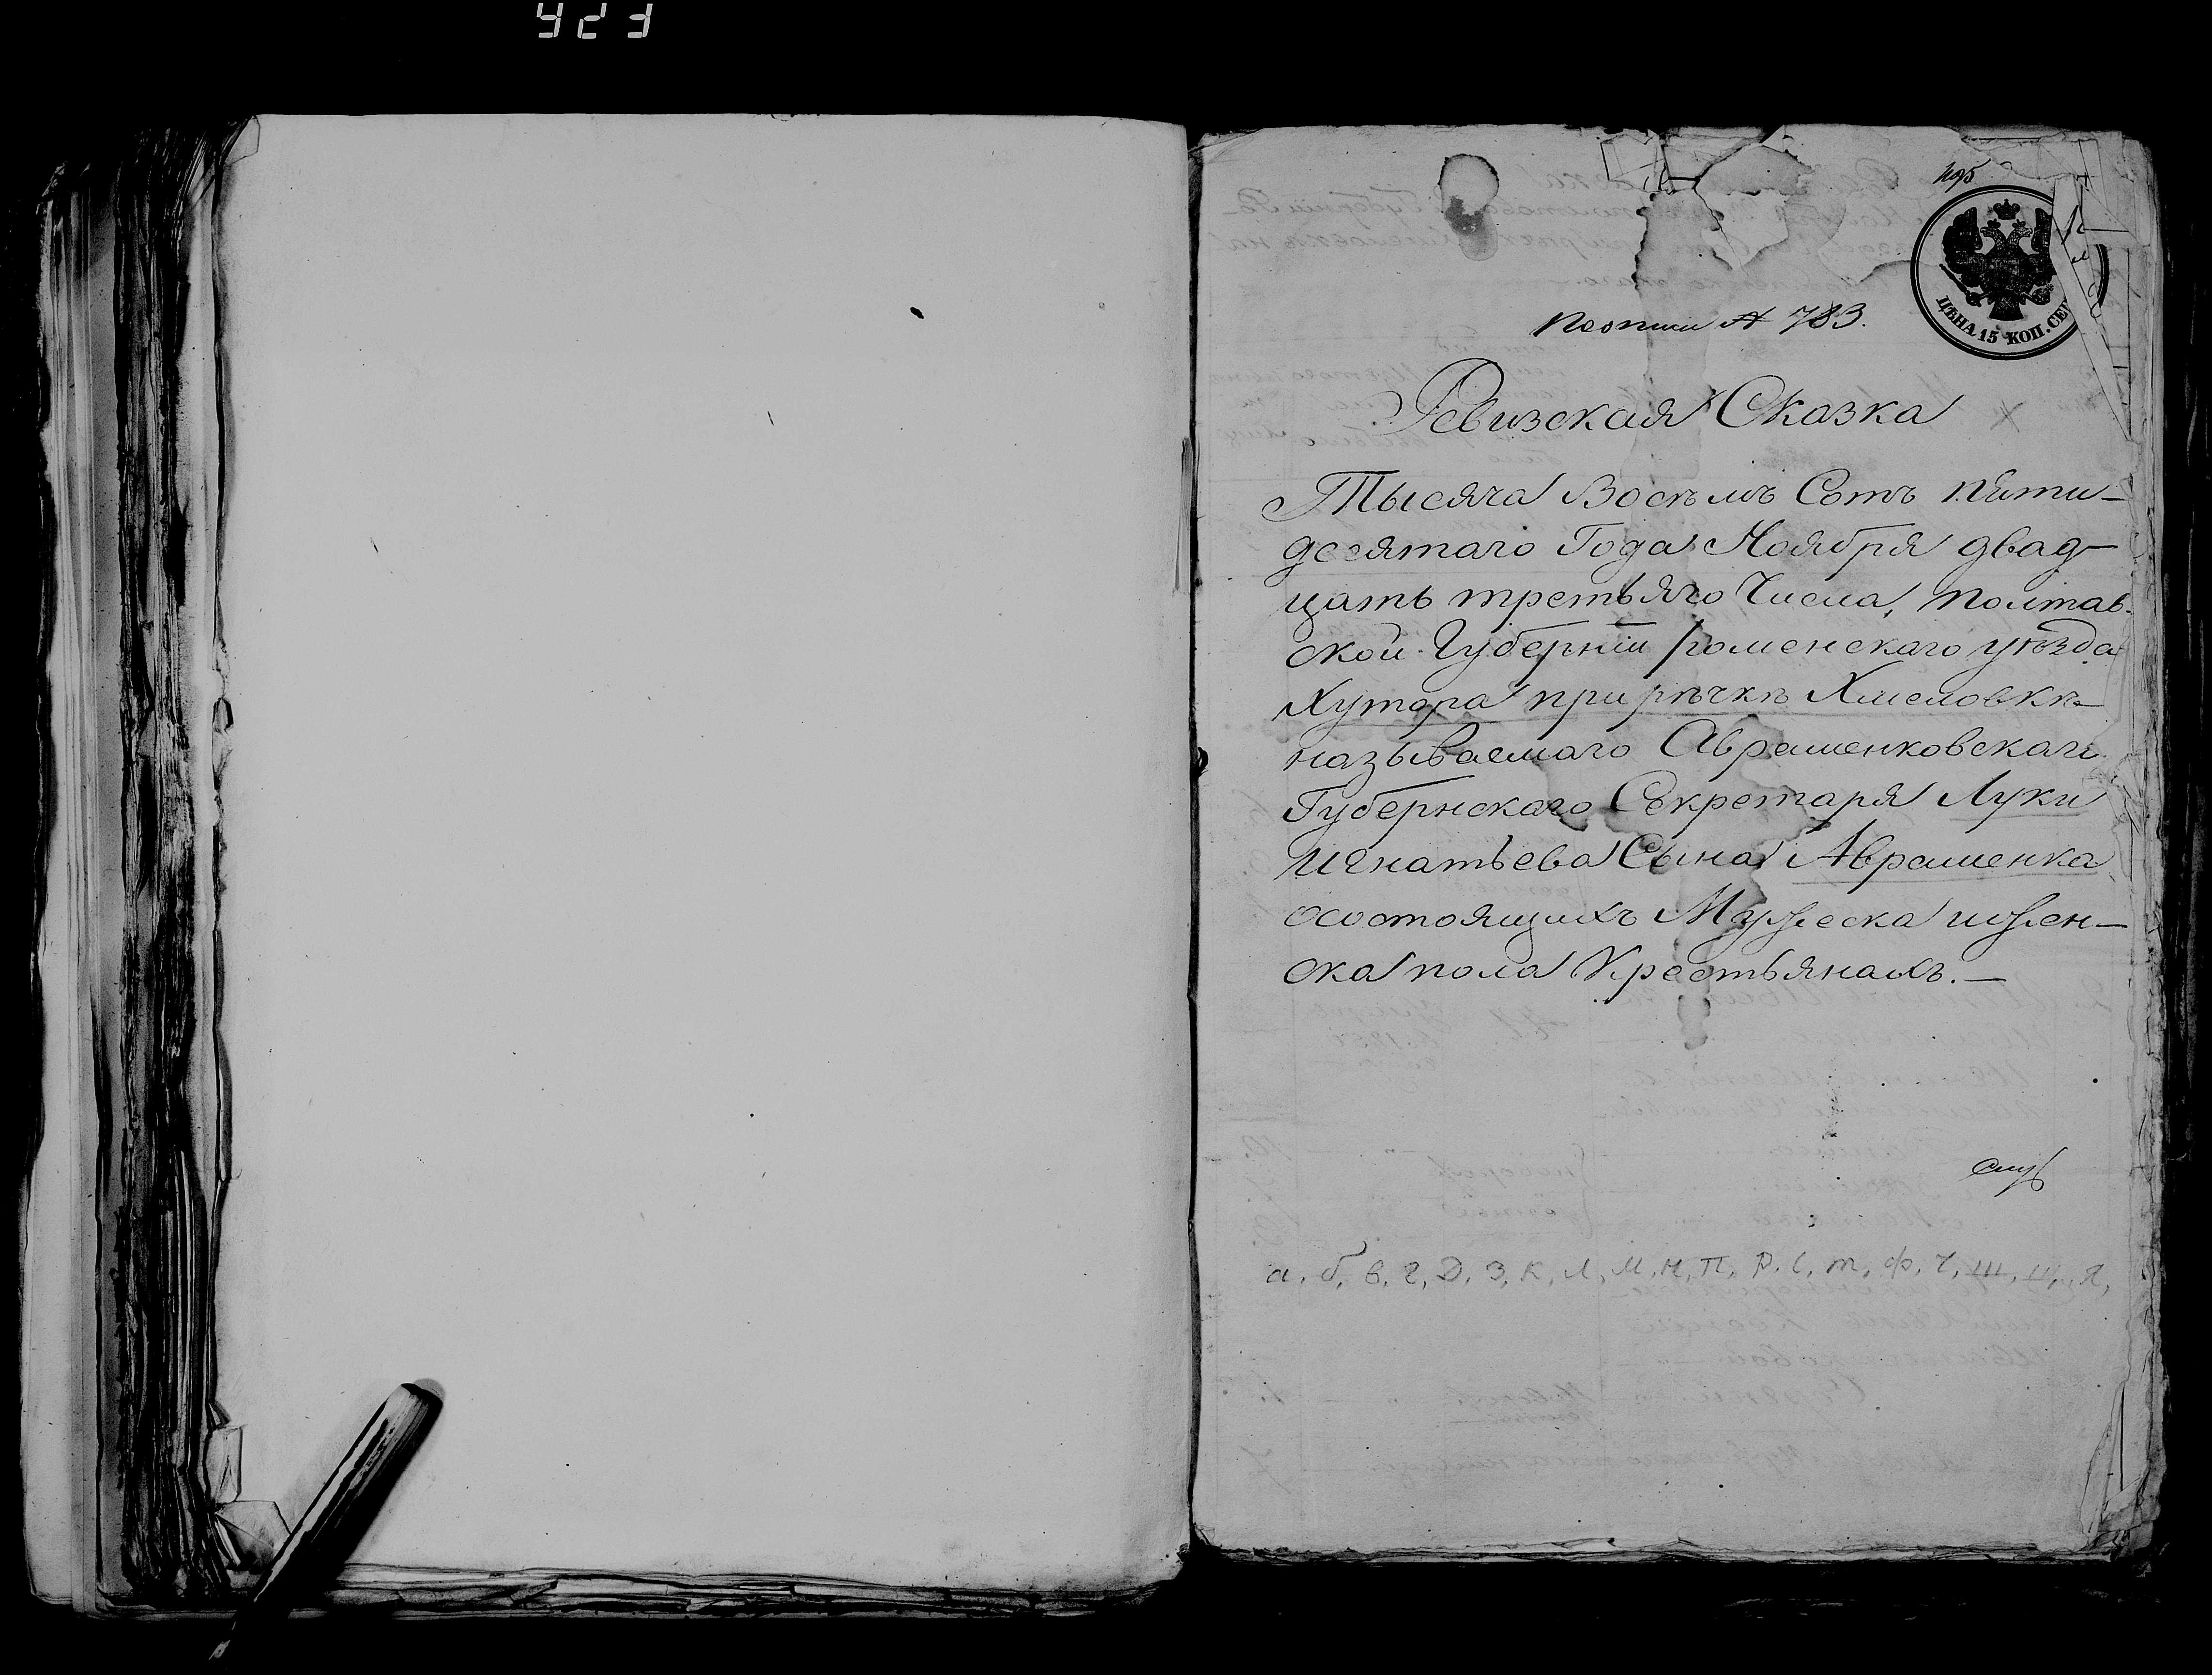 423
поописи № 783.
ЦѢНА 15 КОП. СЕР
Ревизская Сказка
Тысяча Восѣмъ Сотъ пяти-
десятаго Года Ноября двад-
цать третьяго Числа, Полтав-
ской Губерніи роменскаго уѣзда
Хутора при рѣчкѣ Хмеловкѣ
называемаго Аврашенковскаго
Губернскаго Секретаря Луки
Игнатьева Сына Аврашенка
осостоящихъ Мужеска ижен-
ска пола Крестьянахъ.—
а, б, в, г, д, з, к, л, м, н, п, р, с, т, ф, ч, ш, щ, я,